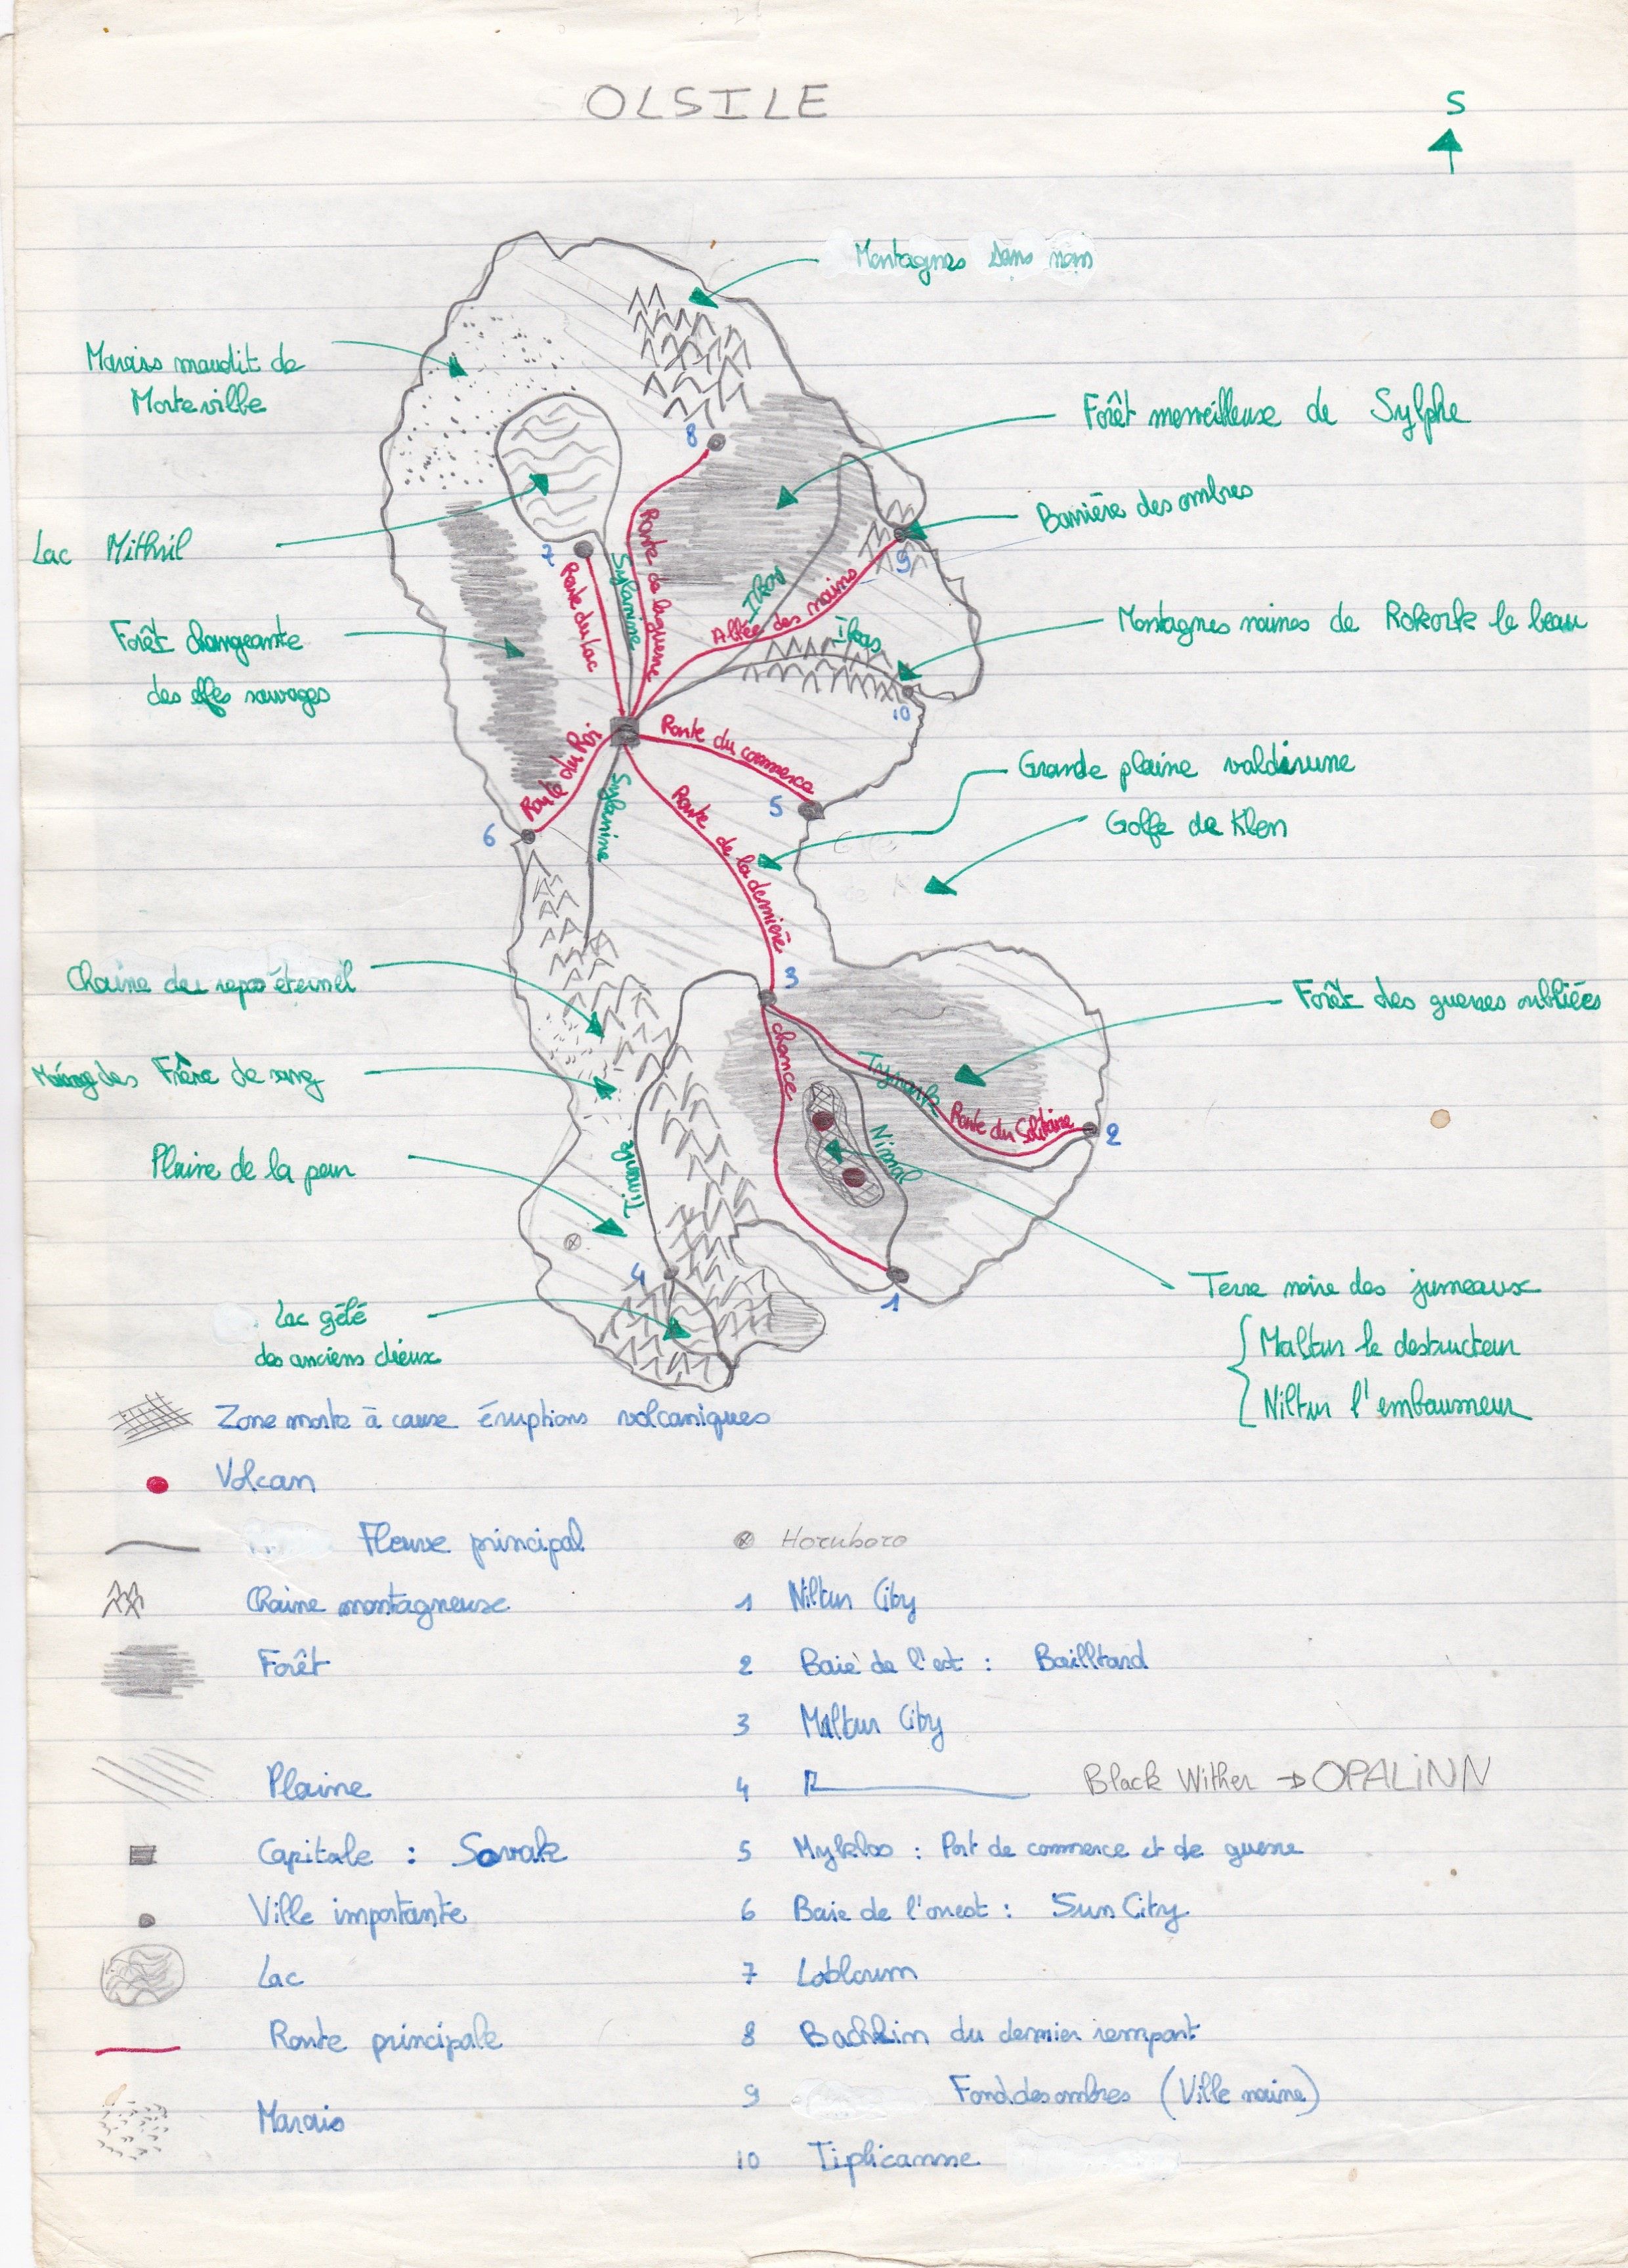 OLSILE
S
Montagnes sans nom
Marais maudit de
Morteville
Forêt merveilleuse de Sylphe
Barrière des ombres
Lac Mithril
Montagnes naines de Rokork le beau
Forêt changeante
des elfes sauvages
Grande plaine valdirune
Golfe de Klen
Chaine du repos éternel
Forêt des guerres oubliées
des Frère de sang
Plaine de la peur
Terre noire des jumeaux
Maltur le destructeur
Niltur l'embaumeur
Lac gêlé
des anciens dieux
8
7
9
10
5
6
3
2
4
1
Route de la guerre
Sylarime
Route du Lac
Allée des nains
Route du Roi
Route du commerce
Sylarime
Route de la dernière
chance
Route du Solitaire
Nimal
Zone morte à cause éruptions volcaniques
Volcan
Fleuve principal
Horuboro
Chaine montagneuse
1 Niltur City
Forêt
2 Baie de l'est : Bailltard
3 Maltur City
Plaine
4 Black Wither → OPALINN
Capitale : Sovak
5 Myklos : Port de commerce et de guerre
Ville importante
6 Baie de l'ouest : Sun City
Lac
7 Lobloum
Route principale
8 Bachkin du dernier rempart
9 Fond des ombres (Ville naine)
Marais
10 Tiplicanne